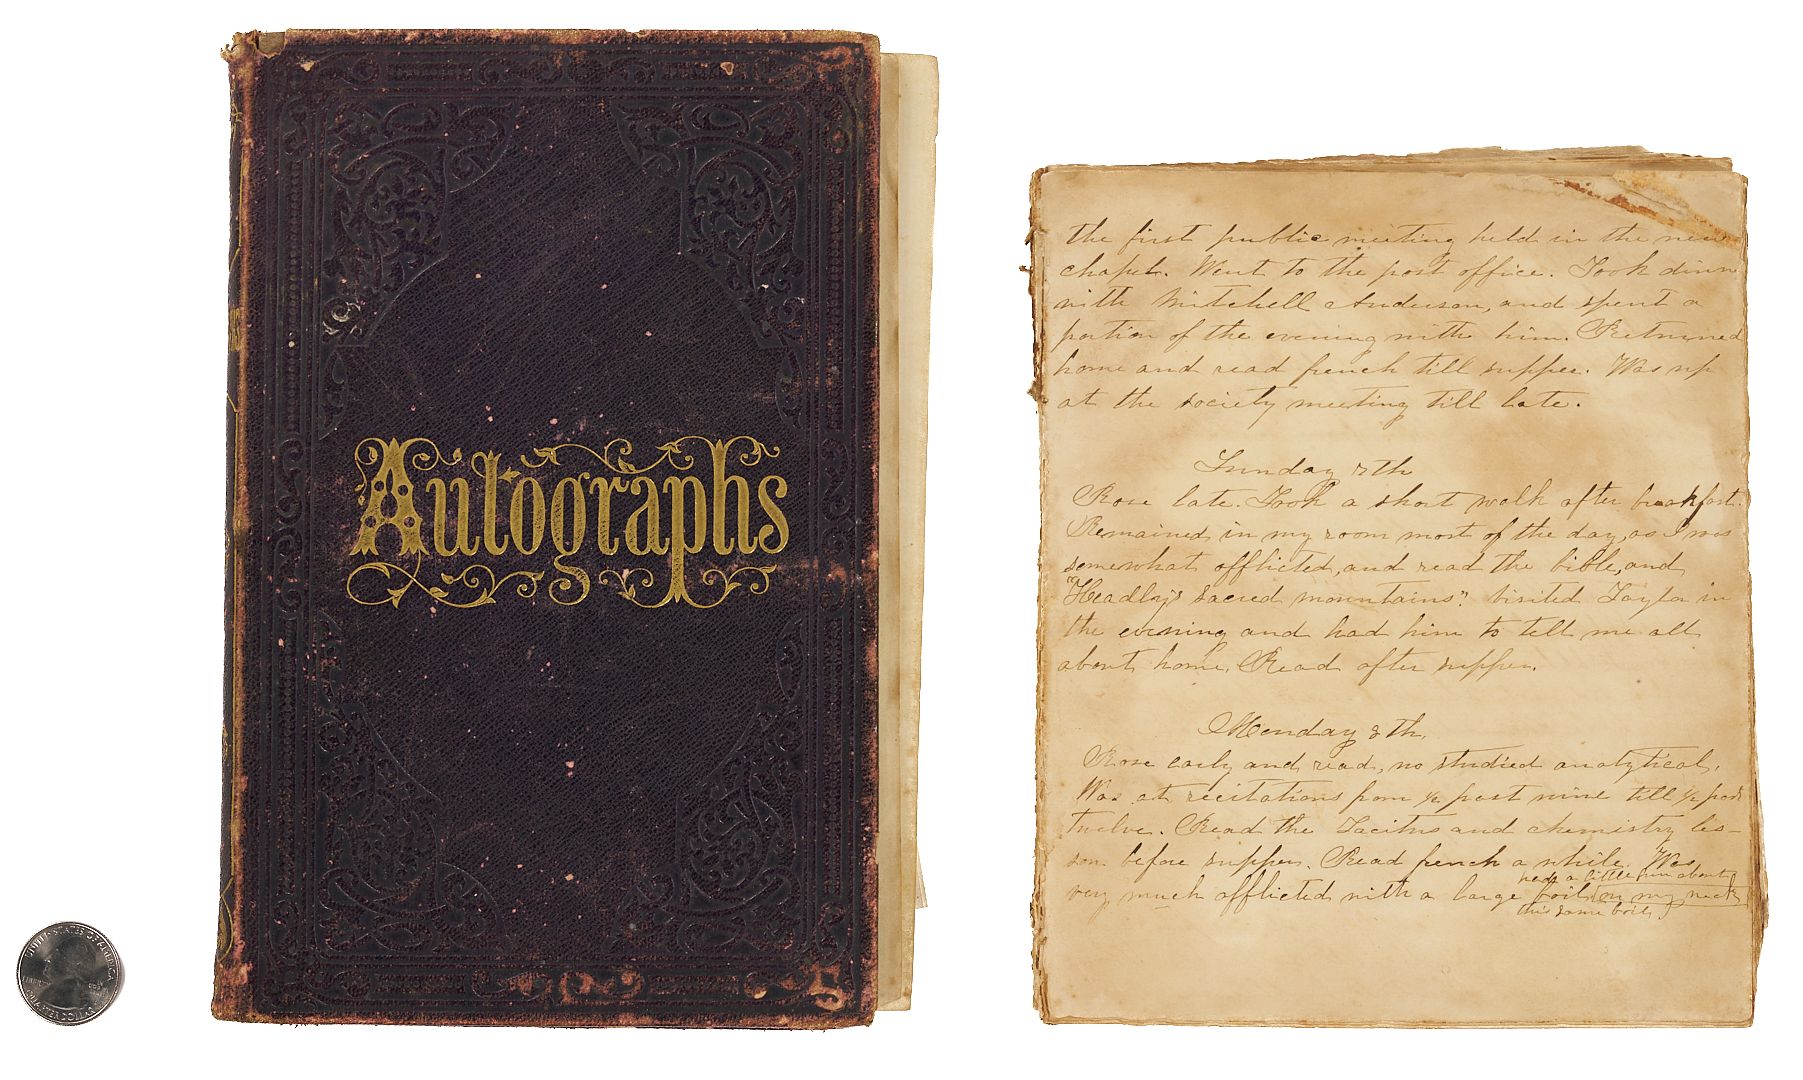 Autographs
UNITED STATES OF AMERICA
LIBERTY
QUARTER DOLLAR
the first public meeting held in the new
chapel. Went to the post office. Took dinn
with Mitchell Anderson, and spent a
portion of the evening with him. Returned
home and read french till supper. Was up
at the society meeting till late.
Sunday 7th
Rose late. Took a short walk after breakfast.
Remained in my room most of the day, as I was
somewhat afflicted, and read the bible, and
"Headly's sacred mountains". Visited Taylor in
the evening and had him to tell me all
about home. Read after supper.
Monday 8th.
Rose early and read, no studied analytical.
Was at recitations from ½ past nine till ½ past
twelve. Read the Tacitus and chemistry les-
son before supper. Read french a while. Was
had a little fun about
very much afflicted with a large boil (on my neck
this same boil)